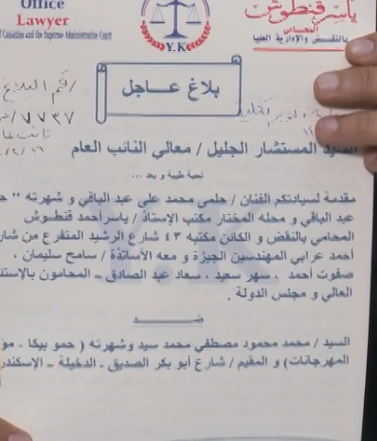 Office
Lawyer
of Cassation and the Supreme Administrative Court
Y.K
ياسر قنطوش
المحامى
بالنقض والإدارية العليا
بلاغ عاجل
رقم البلاغ /
٧٧٣٧
السيد المستشار الجليل / معالي النائب العام
تحية طيبة و بعد ...
مقدمة لسيادتكم الفنان / حلمى محمد على عبد الباقي و شهرته "
عبد الباقي و محله المختار مكتب الإستاذ / ياسر أحمد قنطوش
المحامي بالنقض و الكائن مكتبه ٤٣ شارع الرشيد المتفرع من
أحمد عرابي المهندسين الجيزة و معه الأساتذة / سامح سليمان ،
صفوت أحمد ، سهر سعيد ، سعاد عبد الصادق – المحامون
العالي و مجلس الدولة .
ضـــــــد
السيد / محمد محمود مصطفي محمد سيد وشهرته ( حمو بيكا -
المهرجانات) و المقيم / شارع أبو بكر الصديق - الدخيلة –